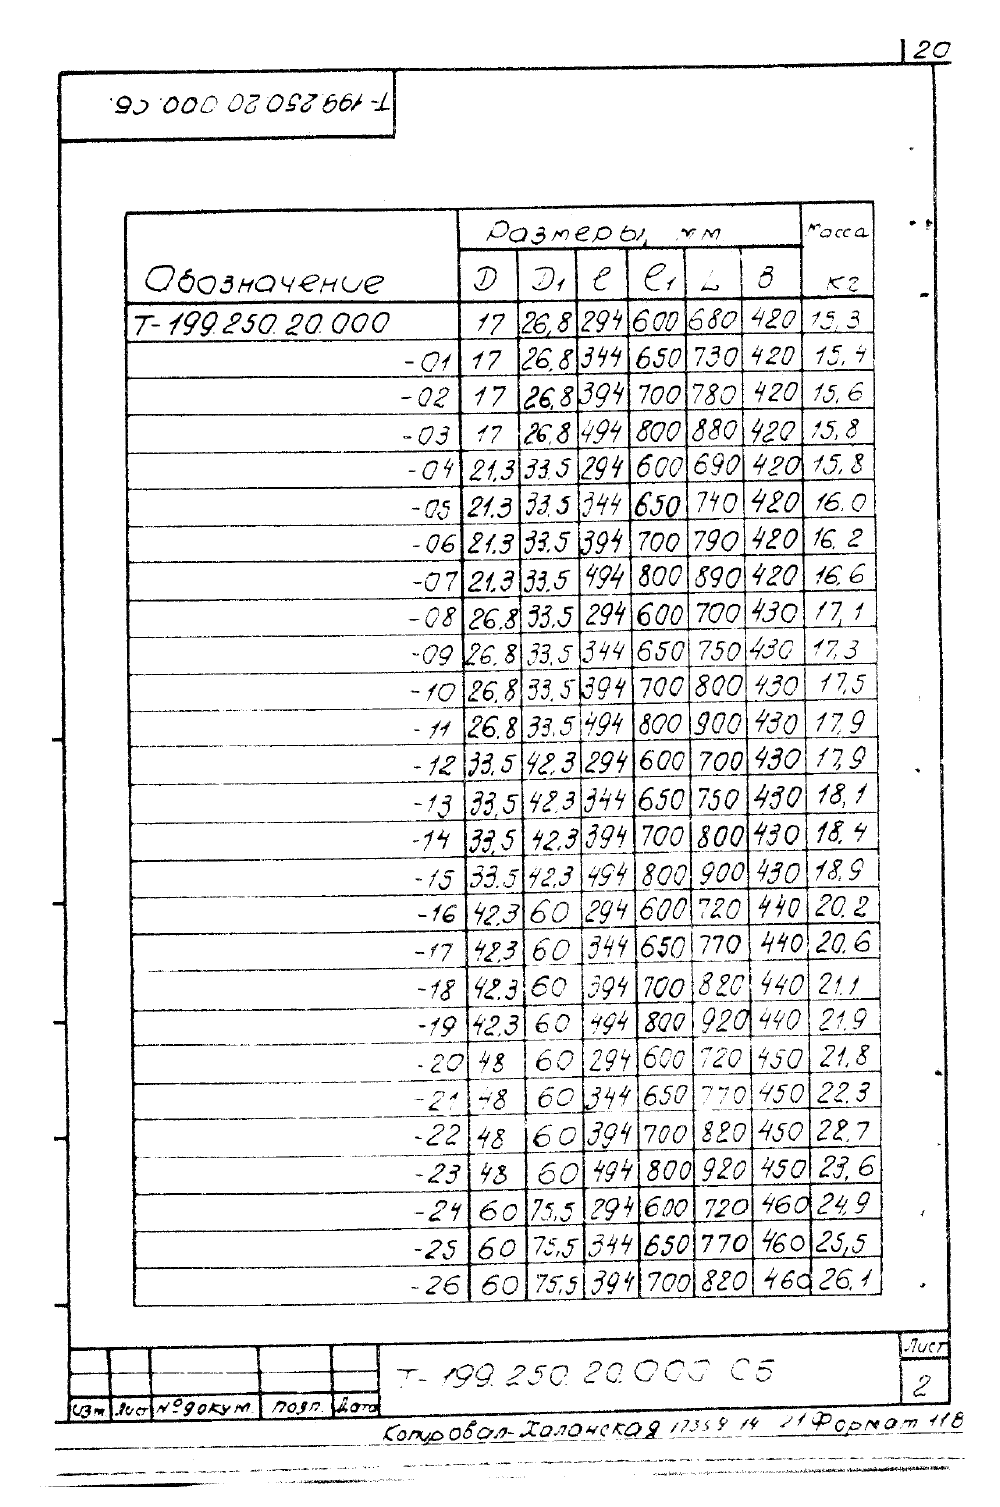 20
Т-199.250.20.000.СБ.
Обозначение Размеры, мм Масса кг
D D1 ℓ ℓ1 L В
Т-199.250.20.000 17 26,8 294 600 680 420 15,3
-01 17 26,8 344 650 730 420 15,4
-02 17 26,8 394 700 780 420 15,6
-03 17 26,8 494 800 880 420 15,8
-04 21,3 33,5 294 600 690 420 15,8
-05 21,3 33,5 344 650 740 420 16,0
-06 21,3 33,5 394 700 790 420 16,2
-07 21,3 33,5 494 800 890 420 16,6
-08 26,8 33,5 294 600 700 430 17,1
-09 26,8 33,5 344 650 750 430 17,3
-10 26,8 33,5 394 700 800 430 17,5
-11 26,8 33,5 494 800 900 430 17,9
-12 33,5 42,3 294 600 700 430 17,9
-13 33,5 42,3 344 650 750 430 18,1
-14 33,5 42,3 394 700 800 430 18,4
-15 33,5 42,3 494 800 900 430 18,9
-16 42,3 60 294 600 720 440 20,2
-17 42,3 60 344 650 770 440 20,6
-18 42,3 60 394 700 820 440 21,1
-19 42,3 60 494 800 920 440 21,9
-20 48 60 294 600 720 450 21,8
-21 48 60 344 650 770 450 22,3
-22 48 60 394 700 820 450 22,7
-23 48 60 494 800 920 450 23,6
-24 60 75,5 294 600 720 460 24,9
-25 60 75,5 344 650 770 460 25,5
-26 60 75,5 394 700 820 460 26,1
Т-199.250.20.000 СБ
Лист
2
Изм Лист № докум. Подп. Дата
Копировал- Халанская 17359 14 21 Формат 11В